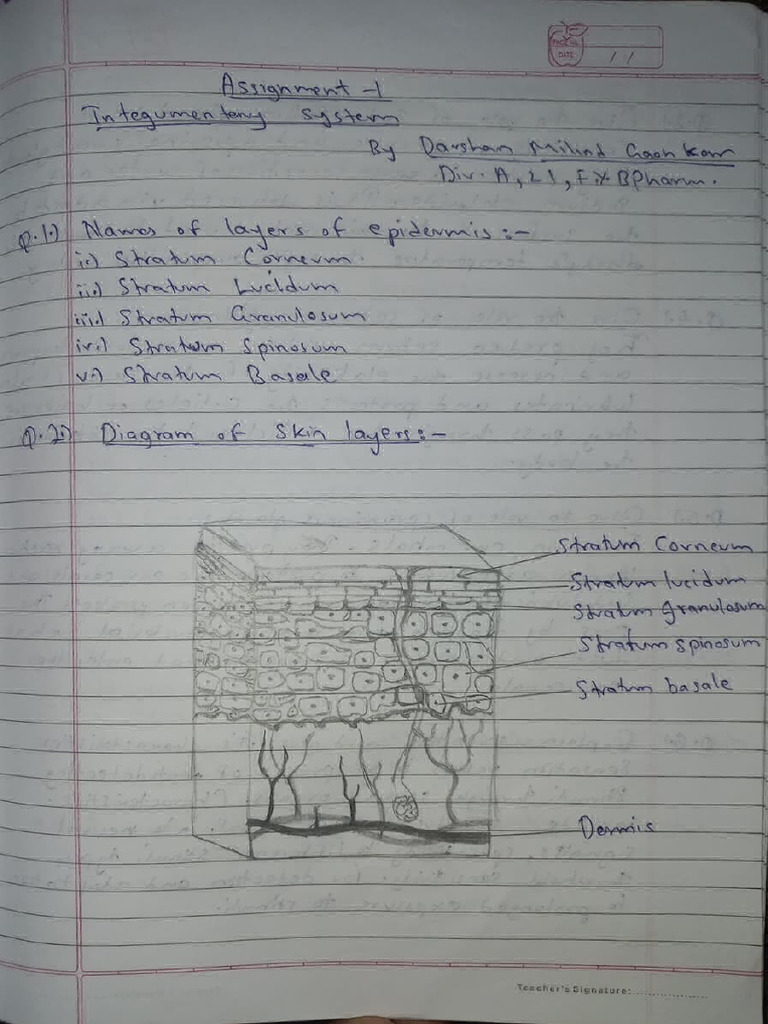 PAGE No.
DATE
/ /
Assignment -1
Integumentery system
By Darshan Milind Gaonkar
Div. A, 21, F.Y BPharm.
Q.1.) Names of layers of epidermis :-
i.) Stratum Corneum.
ii.) Stratum Lucidum
iii.) Stratum Granulosum
iv.) Stratum Spinosum
v.) Stratum Basale
Q.2.) Diagram of skin layers :-
Stratum Corneum
Stratum lucidum
Stratum granulosum
Stratum spinosum
Stratum basale
Dermis
Teacher's Signature: